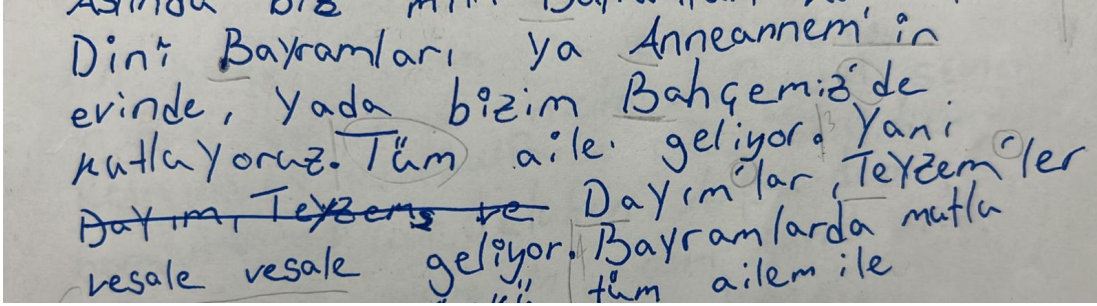 Aslında biz milli
Dini Bayramları ya Anneannem'in
evinde, yada bizim Bahçemiz'de
kutlayoruz. Tüm aile. geliyor. Yani
Dayım, Teyzem ve Dayım'lar, Teyzem'ler
vesale vesale geliyor. Bayramlarda mutla
tüm ailem ile